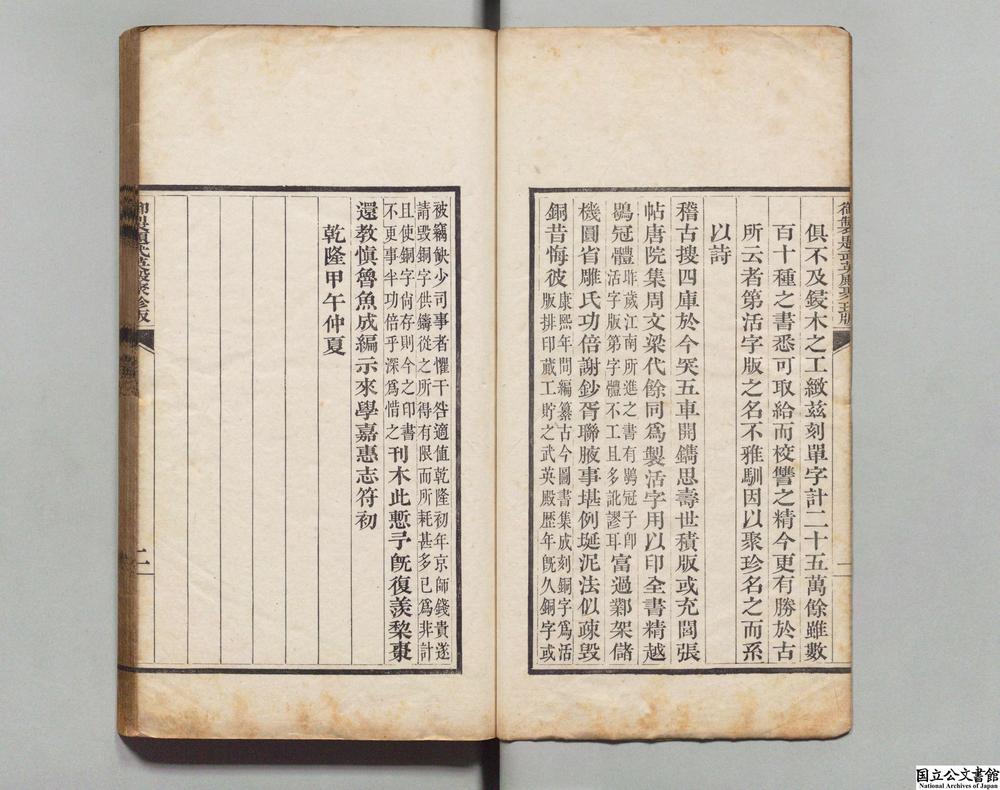 俱不及鋟木之工緻茲刻單字計二十五萬餘雖數
百十種之書悉可取給而校讐之精今更有勝於古
所云者第活字版之名不雅馴因以聚珍名之而系
以詩
稽古搜四庫於今突五車開鐫思壽世積版或充閭張
帖唐院集周文梁代餘同爲製活字用以印全書精越
鶡冠體昨歲江南所進之書有鶡冠子卽
活字版第字體不工且多訛謬耳富過鄴架儲
機圓省雕氏功倍謝鈔胥聯腋事堪例埏泥法似疎毀
銅昔悔彼康熙年間編纂古今圖書集成刻銅字爲活
版排印蕆工貯之武英殿歷年旣久銅字或
被竊缺少司事者懼干咎適値乾隆初年京師錢貴遂
請毀銅字供鑄從之所得有限而所耗甚多已爲非計
且使銅字尙存則今之印書
不更事半功倍乎深爲惜之刊木此慙予旣復羨棃棗
還教愼魯魚成編示來學嘉惠志符初
乾隆甲午仲夏
二
国立公文書館
National Archives of Japan